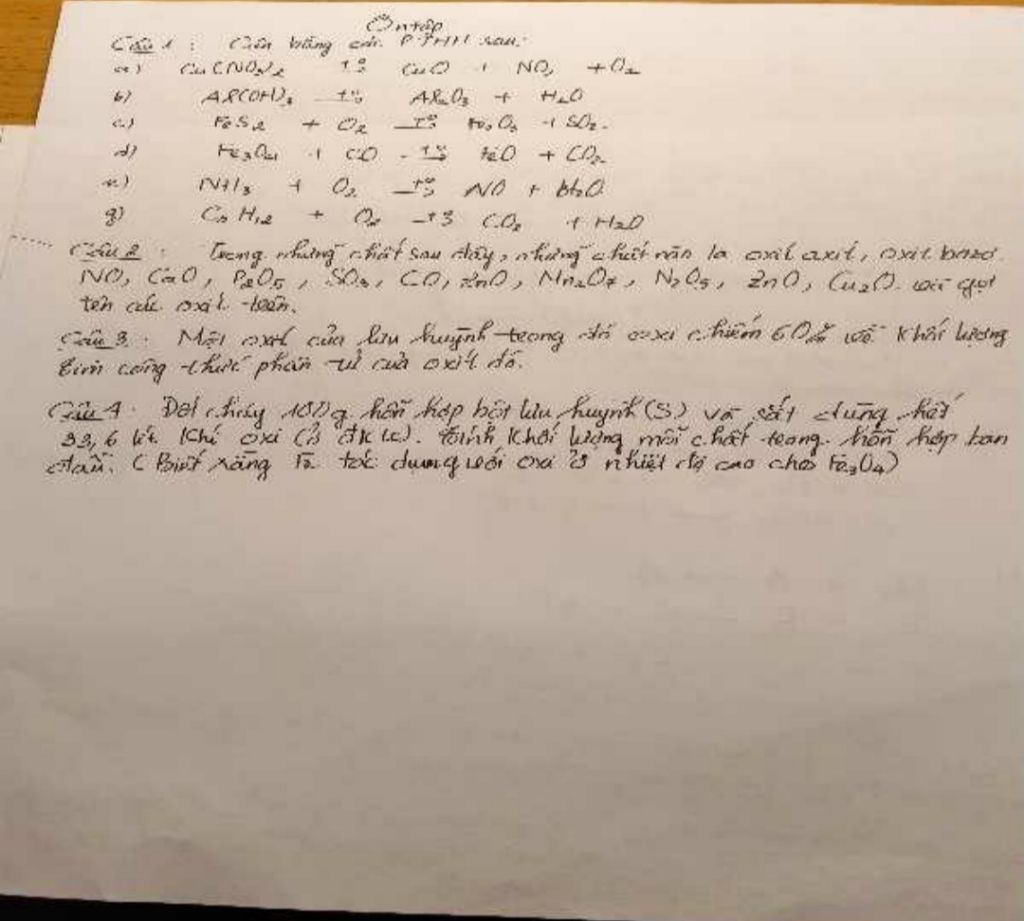 Ôn tập
Câu 1 : Cân bằng các PTHH sau:
a) Cu(NO3)2 t° CuO + NO2 + O2
b) Al(OH)3 t° Al2O3 + H2O
c) FeS2 + O2 t° Fe2O3 + SO2.
d) Fe3O4 + CO t° FeO + CO2
e) NH3 + O2 t° NO + H2O
g) C5H12 + O2 CO2 + H2O
Câu 2 : Trong những chất sau đây, những chất nào là oxit axit, oxit bazơ.
NO, CaO, P2O5, SO3, CO, ZnO, Mn2O7, N2O5, ZnO, Cu2O. và gọi
tên các oxit trên.
Câu 3 : Một oxit của lưu huỳnh trong đó oxi chiếm 60% về khối lượng
tìm công thức phân tử của oxit đó.
Câu 4. Đốt cháy g hỗn hợp bột lưu huỳnh (S) và sắt dùng hết
33,6 lít khí oxi (ở đktc). Tính khối lượng mỗi chất trong hỗn hợp ban
đầu. (Biết rằng Fe tác dụng với oxi ở nhiệt độ cao cho Fe3O4)